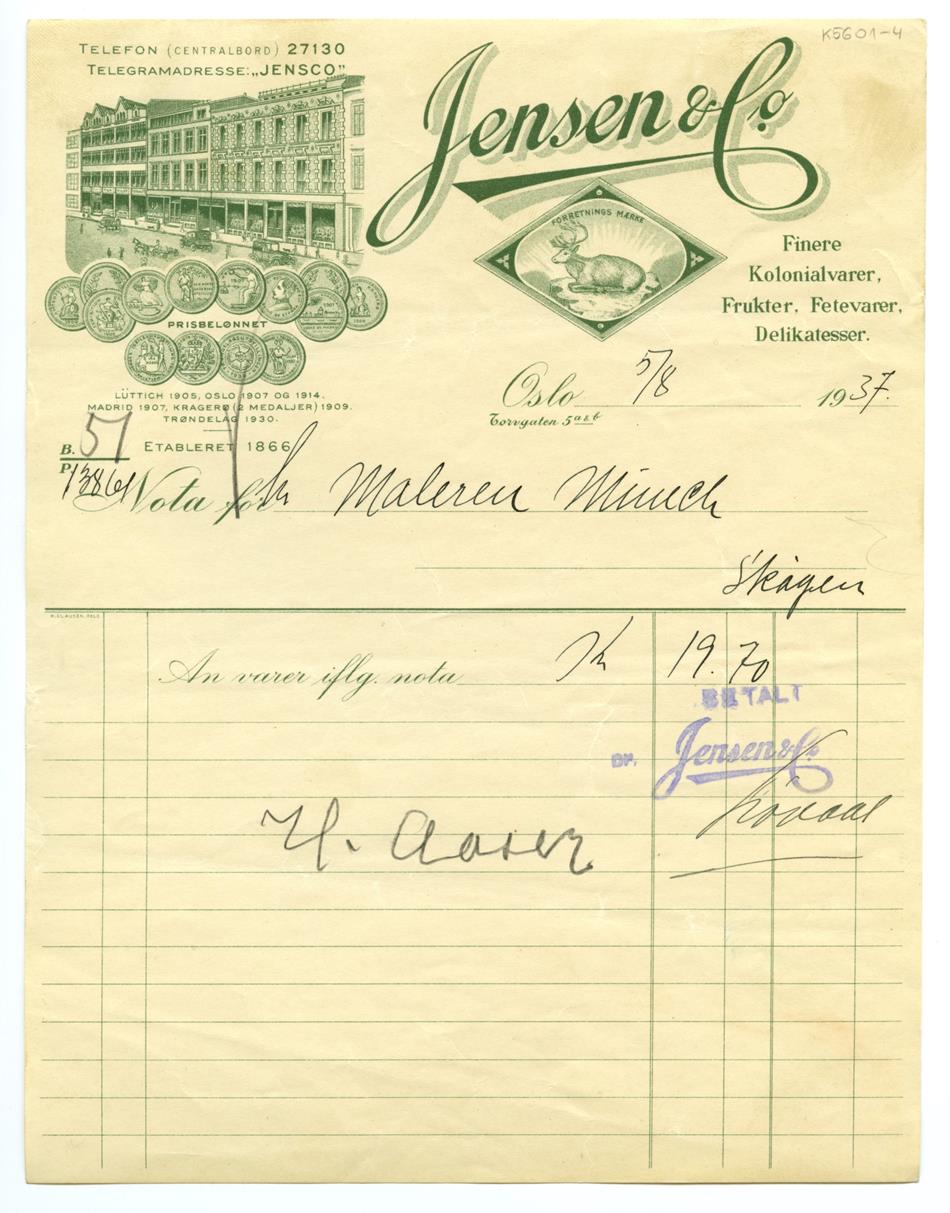 K5601-4
TELEFON (CENTRALBORD) 27130
TELEGRAMADRESSE: „JENSCO”
Jensen & Co.
FORRETNINGS MÆRKE
Finere
Kolonialvarer,
Frukter, Fetevarer,
Delikatesser.
PRISBELØNNET
LÜTTICH 1905, OSLO 1907 OG 1914,
MADRID 1907, KRAGERØ (2 MEDALJER) 1909.
TRØNDELAG 1930.
Oslo 5/8 1937.
Torvgaten 5 a & b
B. 51
ETABLERET 1866
P.
Nota for Hr Maleren Münch
Skøyen
An varer iflg. nota Kr 19.70
BETALT
Jensen & Co.